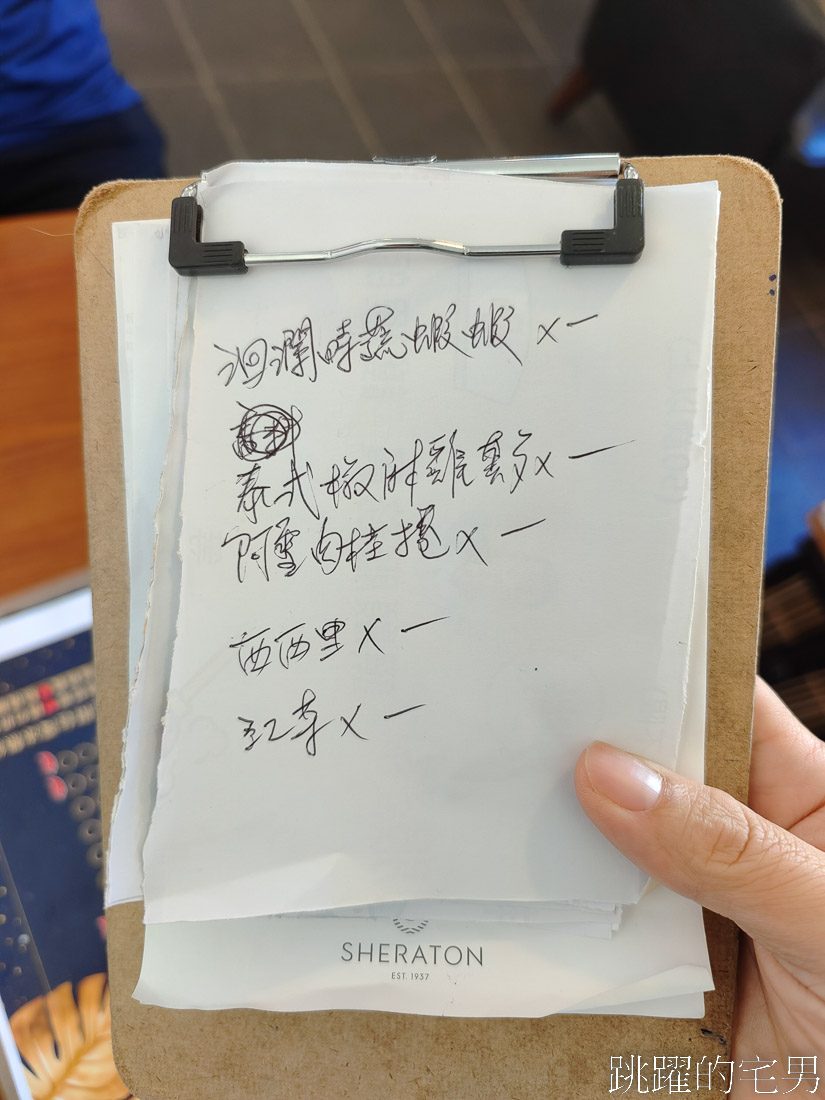 洄瀾時蔬蝦蝦 x 一
泰式椒麻雞 x 一
肉桂捲 x 一
西西里 x 一
紅茶 x 一
SHERATON
EST. 1937
跳躍的宅男